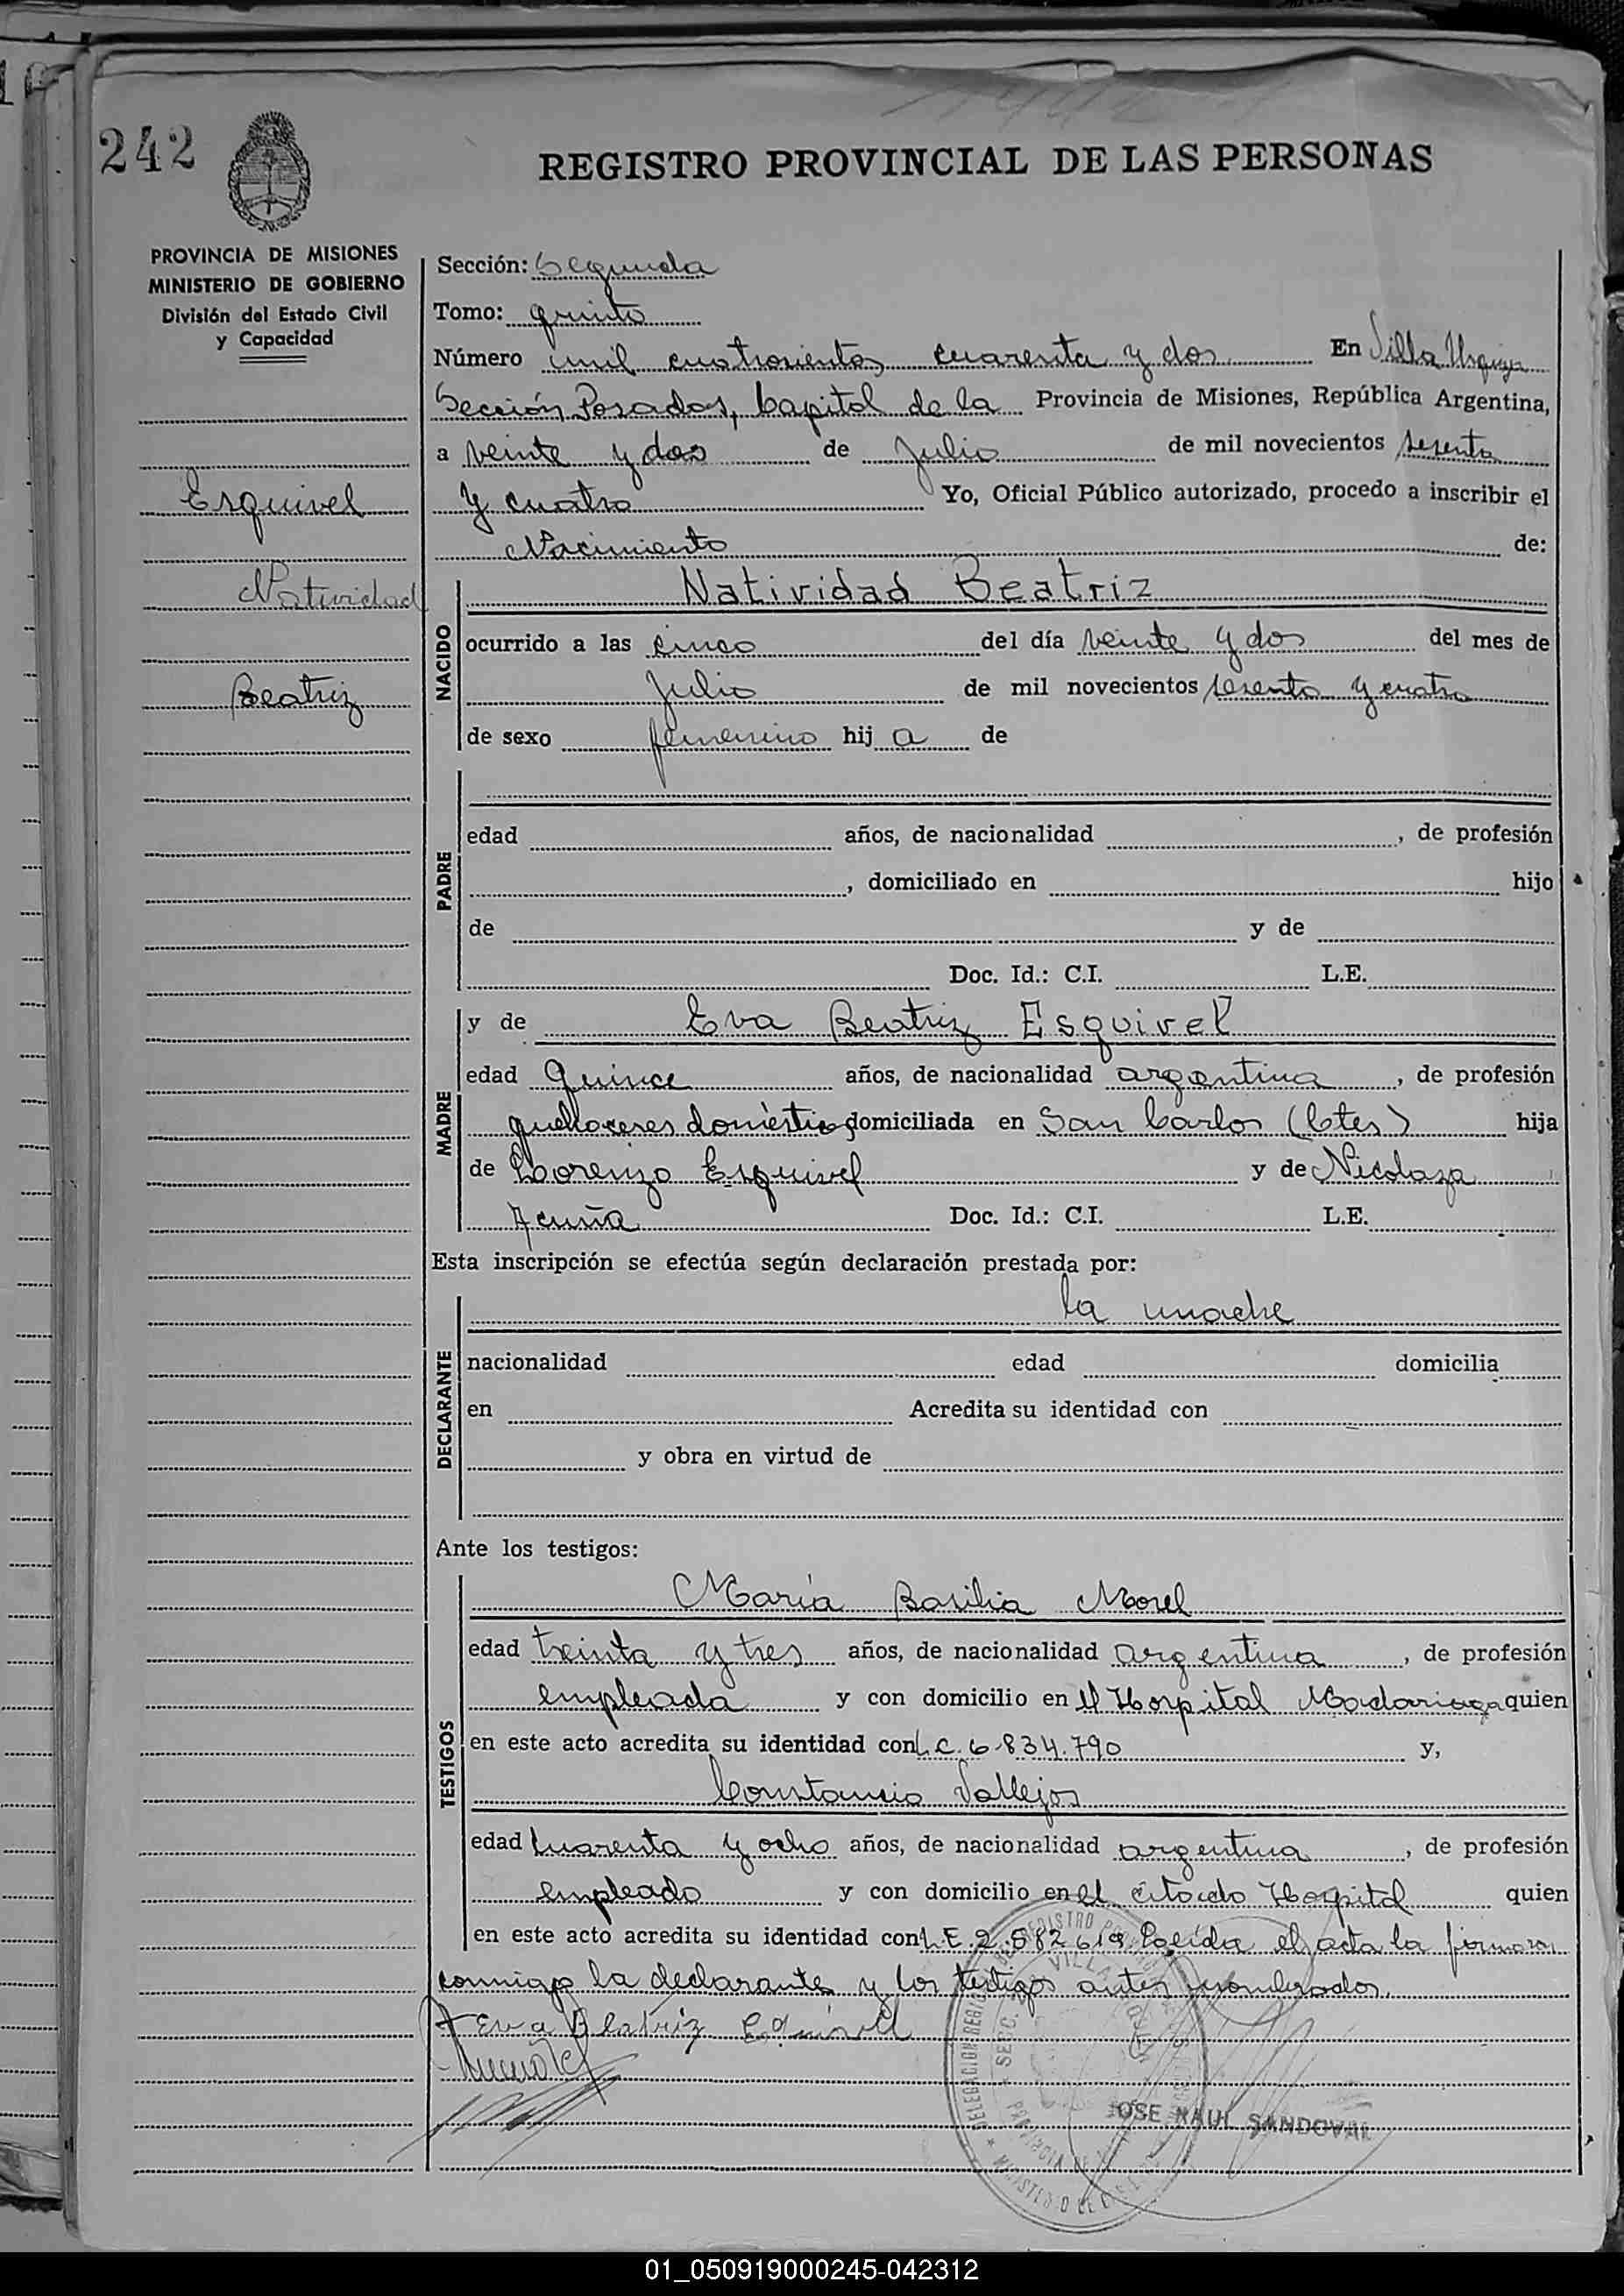 242
REGISTRO PROVINCIAL DE LAS PERSONAS
PROVINCIA DE MISIONES
MINISTERIO DE GOBIERNO
División del Estado Civil
y Capacidad
Esquivel
Natividad
Beatriz
Sección: Segunda
Tomo: quinto
Número mil cuatrocientos cuarenta y dos En Villa Urquiza
Sección Posadas, Capital de la Provincia de Misiones, República Argentina,
a veinte y dos de Julio de mil novecientos sesenta
y cuatro Yo, Oficial Público autorizado, procedo a inscribir el
Nacimiento de:
NACIDO
Natividad Beatriz
ocurrido a las cinco del día veinte y dos del mes de
Julio de mil novecientos sesenta y cuatro
de sexo femenino hij a de
PADRE
edad años, de nacionalidad , de profesión
, domiciliado en hijo
de y de
Doc. Id.: C.I. L.E.
MADRE
y de Eva Beatriz Esquivel
edad Quince años, de nacionalidad argentina , de profesión
quehaceres domésticos domiciliada en San Carlos (Ctes) hija
de Lorenzo Esquivel y de Nicolaza
Acuña Doc. Id.: C.I. L.E.
Esta inscripción se efectúa según declaración prestada por:
DECLARANTE
la madre
nacionalidad edad domicilia
en Acredita su identidad con
y obra en virtud de
Ante los testigos:
TESTIGOS
María Basilia Morel
edad treinta y tres años, de nacionalidad argentina , de profesión
empleada y con domicilio en el Hospital Madariaga quien
en este acto acredita su identidad con L.C. 6.834.790 y,
Constancio Vallejos
edad cuarenta y ocho años, de nacionalidad argentina , de profesión
empleado y con domicilio en el citado Hospital quien
en este acto acredita su identidad con L.E. 2.582.619 Leída el acta la firman
conmigo la declarante y los testigos antes nombrados.
Eva Beatriz Eqúivel
JOSE RAUL SANDOVAL
01_050919000245-042312